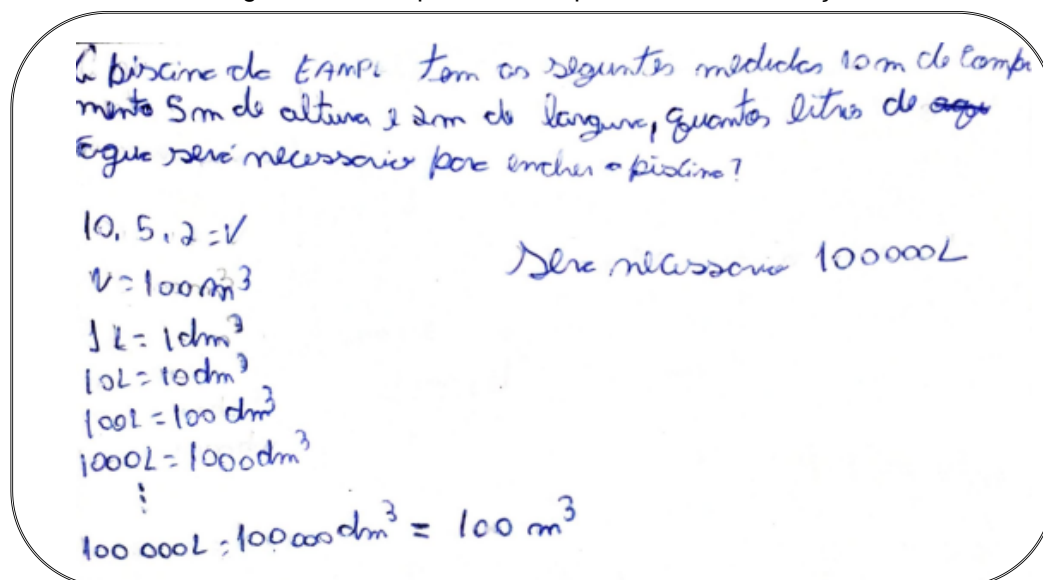 A piscina da EAMPL tem as seguintes medidas 10m de Compri
mento 5m de altura e 2m de largura, quantos litros de
Agua será necessario para encher a piscina?
10. 5. 2 = V
V = 100m³
1L = 1dm³
10L = 10dm³
100L = 100 dm³
1000L = 1000dm³
⋮
100 000L = 100 000 dm³ = 100 m³
Sera necessario 100000L